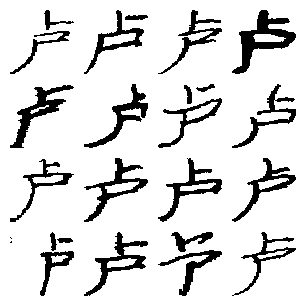 卢卢卢卢
卢卢卢卢
卢卢卢卢
卢卢卢卢